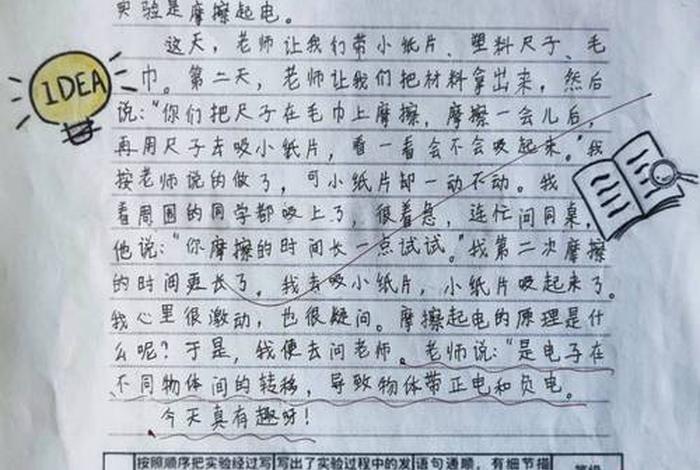 实验是摩擦起电。
这天，老师让我们带小纸片、塑料尺子、毛
巾。第二天，老师让我们把材料拿出来，然后
说：“你们把尺子在毛巾上摩擦，摩擦一会儿后，
再用尺子去吸小纸片，看一看会不会吸起来。”我
按老师说的做了，可小纸片却一动不动。我
看周围的同学都吸上了，很着急，连忙问同桌，
他说：“你摩擦的时间长一点试试。”我第二次摩擦
的时间更长了，我去吸小纸片，小纸片吸起来了。
我心里很激动，也很疑问。摩擦起电的原理是什
么呢？于是，我便去问老师。老师说：“是电子在
不同物体间的转移，导致物体带正电和负电。
今天真有趣呀！
IDEA
按照顺序把实验经过写 写出了实验过程中的发 语句通顺，有细节描